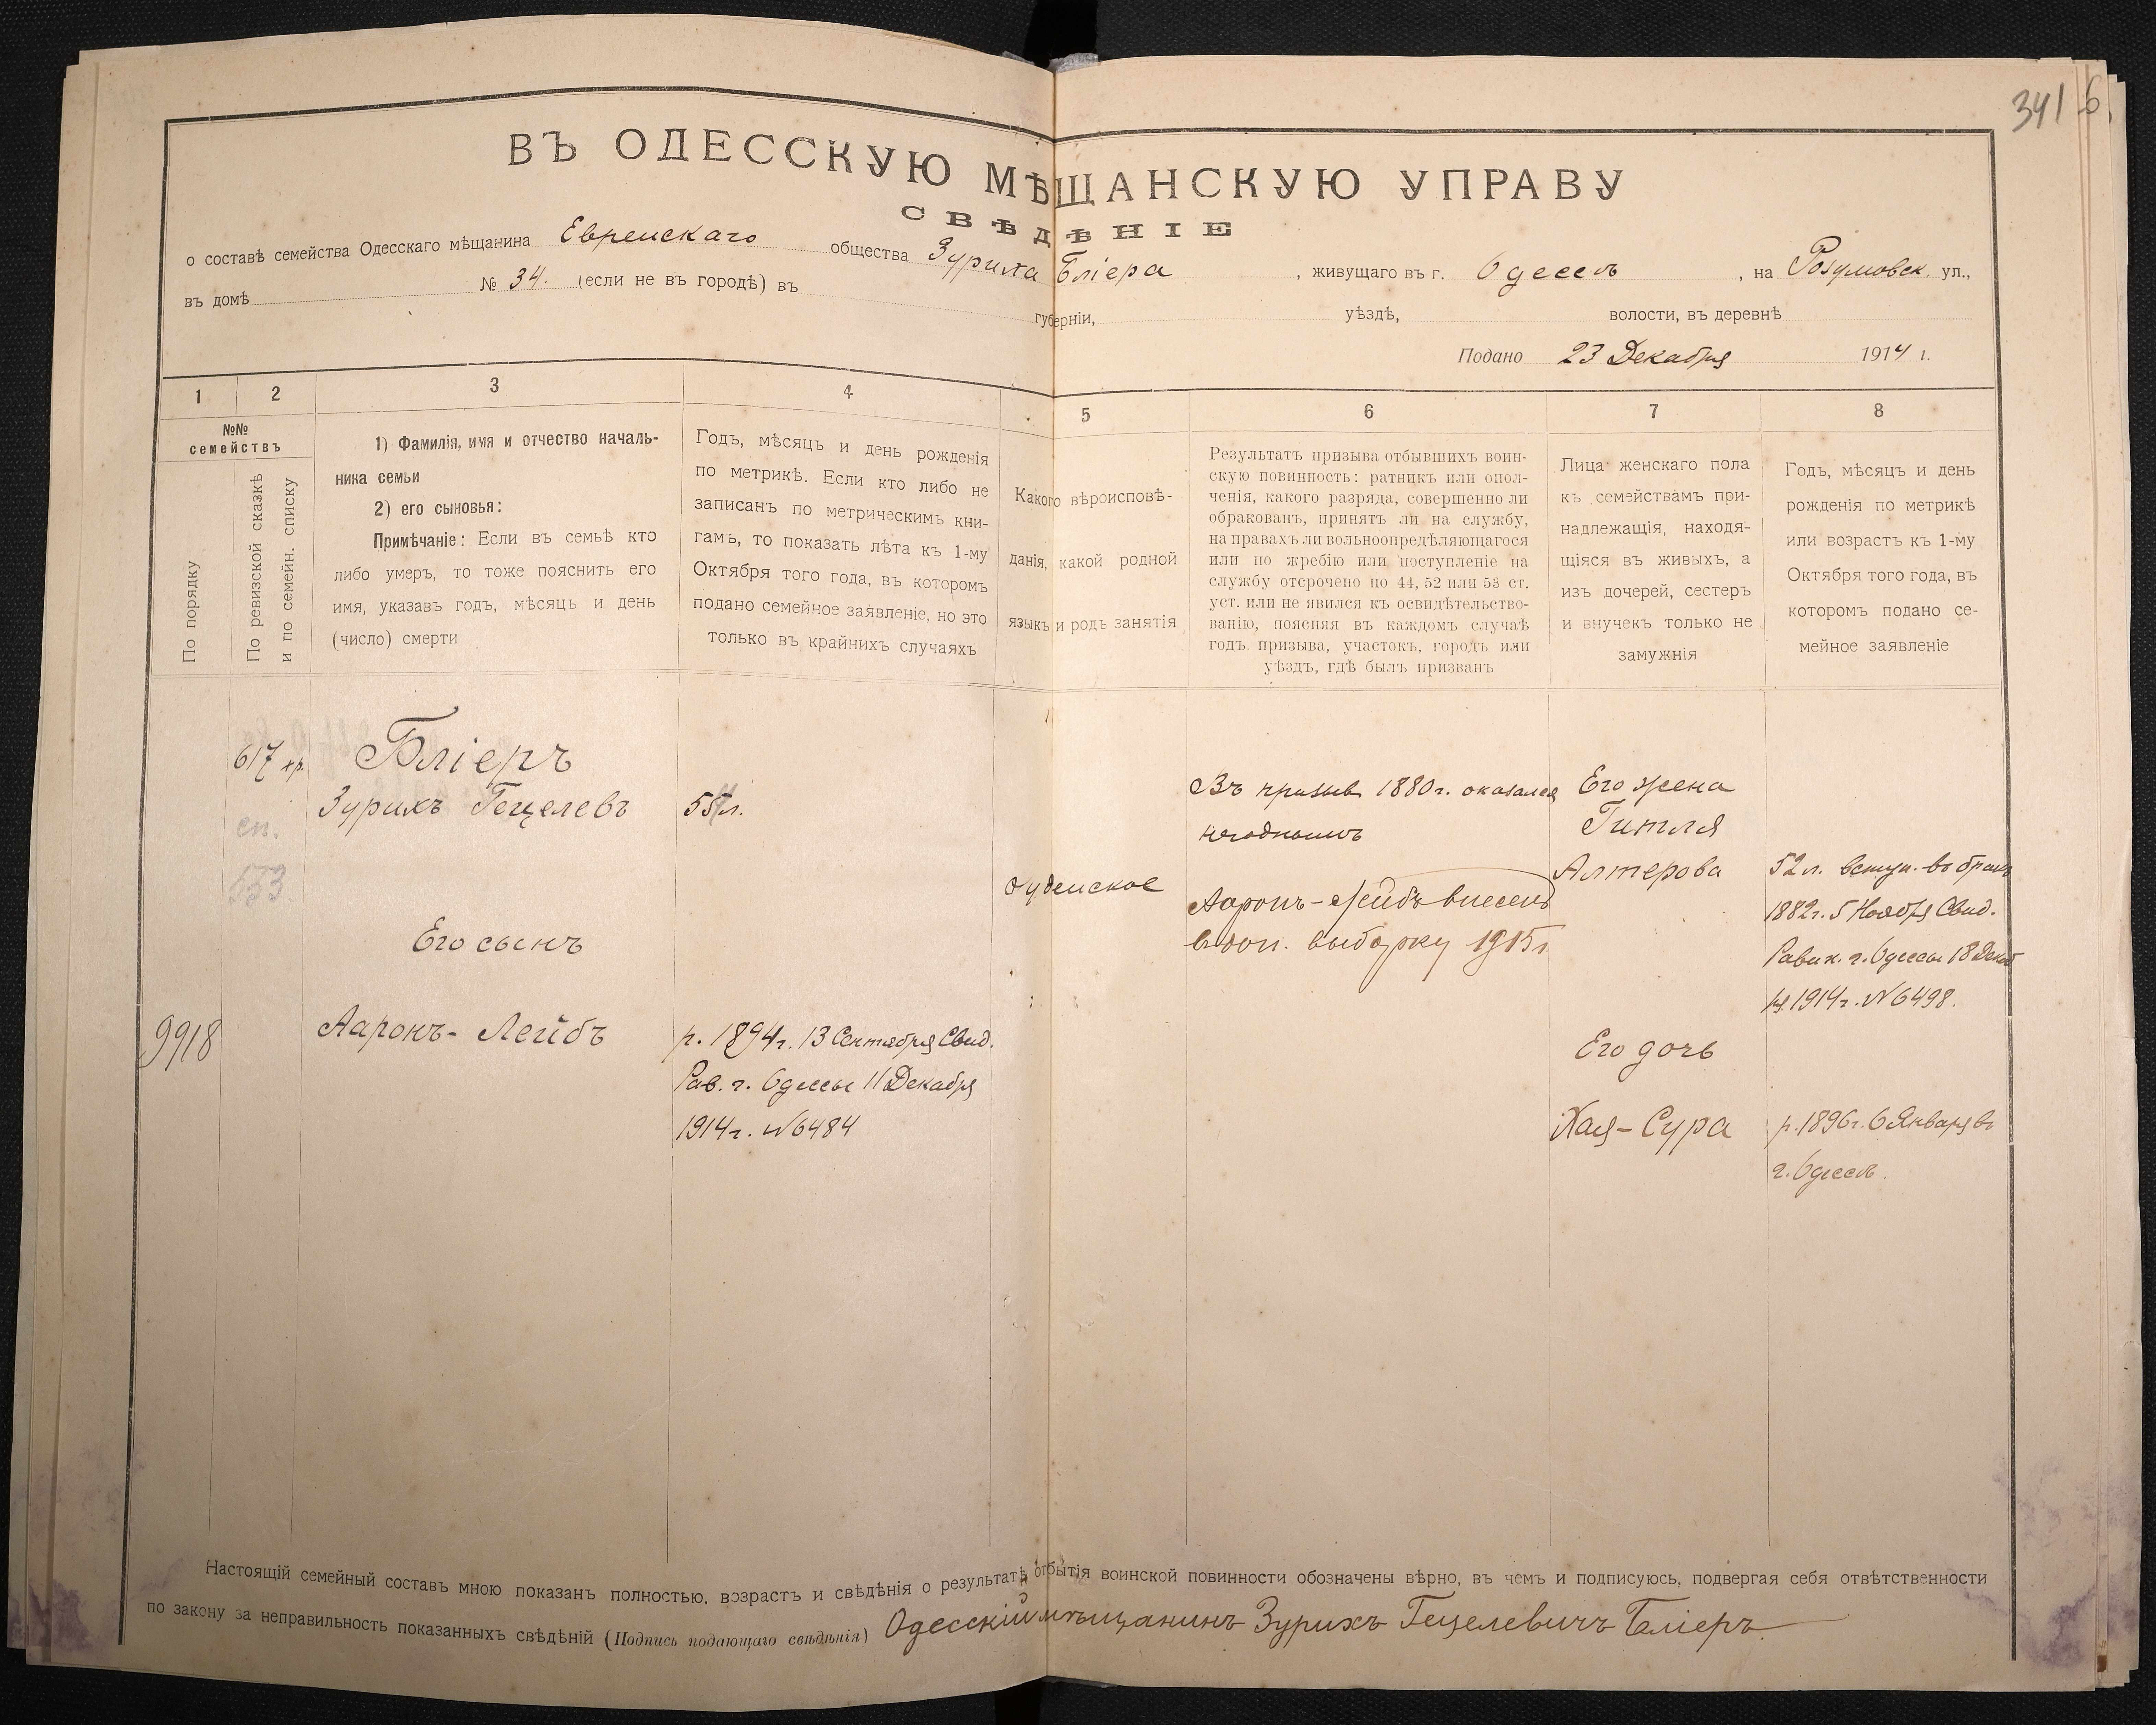 341
ВЪ ОДЕССКУЮ МѢЩАНСКУЮ УПРАВУ
СВѢДѢНІЕ
о составѣ семейства Одесскаго мѣщанина Еврейскаго общества Зуриха Бліера, живущаго въ г. Одессѣ, на Розумовск. ул.,
въ домѣ № 34. (если не въ городѣ) въ губерніи, уѣздѣ, волости, въ деревнѣ
Подано 23 Декабря 1914 г.
1 2 3 4 5 6 7 8
№№
семействъ
По порядку
По ревизской сказкѣ
и по семейн. списку
1) Фамилія, имя и отчество началь-
ника семьи
2) его сыновья:
Примѣчаніе: Если въ семьѣ кто
либо умеръ, то тоже пояснить его
имя, указавъ годъ, мѣсяцъ и день
(число) смерти
Годъ, мѣсяцъ и день рожденія
по метрикѣ. Если кто либо не
записанъ по метрическимъ кни-
гамъ, то показать лѣта къ 1-му
Октября того года, въ которомъ
подано семейное заявленіе, но это
только въ крайнихъ случаяхъ
Какого вѣроисповѣ-
данія, какой родной
языкъ и родъ занятія
Результатъ призыва отбывшихъ воин-
скую повинность: ратникъ или опол-
ченія, какого разряда, совершенно ли
обракованъ, принятъ ли на службу,
на правахъ ли вольноопредѣляющагося
или по жребію или поступленіе на
службу отсрочено по 44, 52 или 53 ст.
уст. или не явился къ освидѣтельство-
ванію, поясняя въ каждомъ случаѣ
годъ призыва, участокъ, городъ или
уѣздъ, гдѣ былъ призванъ
Лица женскаго пола
къ семействамъ при-
надлежащія, находя-
щіяся въ живыхъ, а
изъ дочерей, сестеръ
и внучекъ только не
замужнія
Годъ, мѣсяцъ и день
рожденія по метрикѣ
или возрастъ къ 1-му
Октября того года, въ
которомъ подано се-
мейное заявленіе
617 хр.
сп.
553
Бліеръ
Зурихъ Гецелевъ
55 л.
Его сынъ
9918
Ааронъ-Лейбъ
р. 1894 г. 13 Сентября Свид.
Рав. г. Одессы 11 Декабря
1914 г. № 6484
Іудейское
Въ призыв 1880 г. оказался
негоднымъ
Ааронъ-Лейбъ внесенъ
в доп. выборку 1915 г.
Его жена
Гитля
Алтерова
52 л. вступ. въ бракъ
1882 г. 5 Ноября Свид.
Равин. г. Одессы 18 Декаб
1914 г. № 6498.
Его дочь
Хая-Сура
р. 1896 г. 6 Января въ
г. Одессѣ.
Настоящій семейный составъ мною показанъ полностью, возрастъ и свѣдѣнія о результатѣ отбытія воинской повинности обозначены вѣрно, въ чемъ и подписуюсь, подвергая себя отвѣтственности
по закону за неправильность показанныхъ свѣдѣній (Подпись подающаго свѣдѣнія) Одесскій мѣщанинъ Зурихъ Гецелевичъ Бліеръ